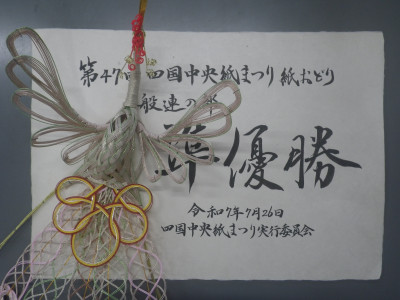 第47回 四国中央紙まつり 紙おどり
般連の部
準優勝
令和7年7月26日
四国中央紙まつり実行委員会